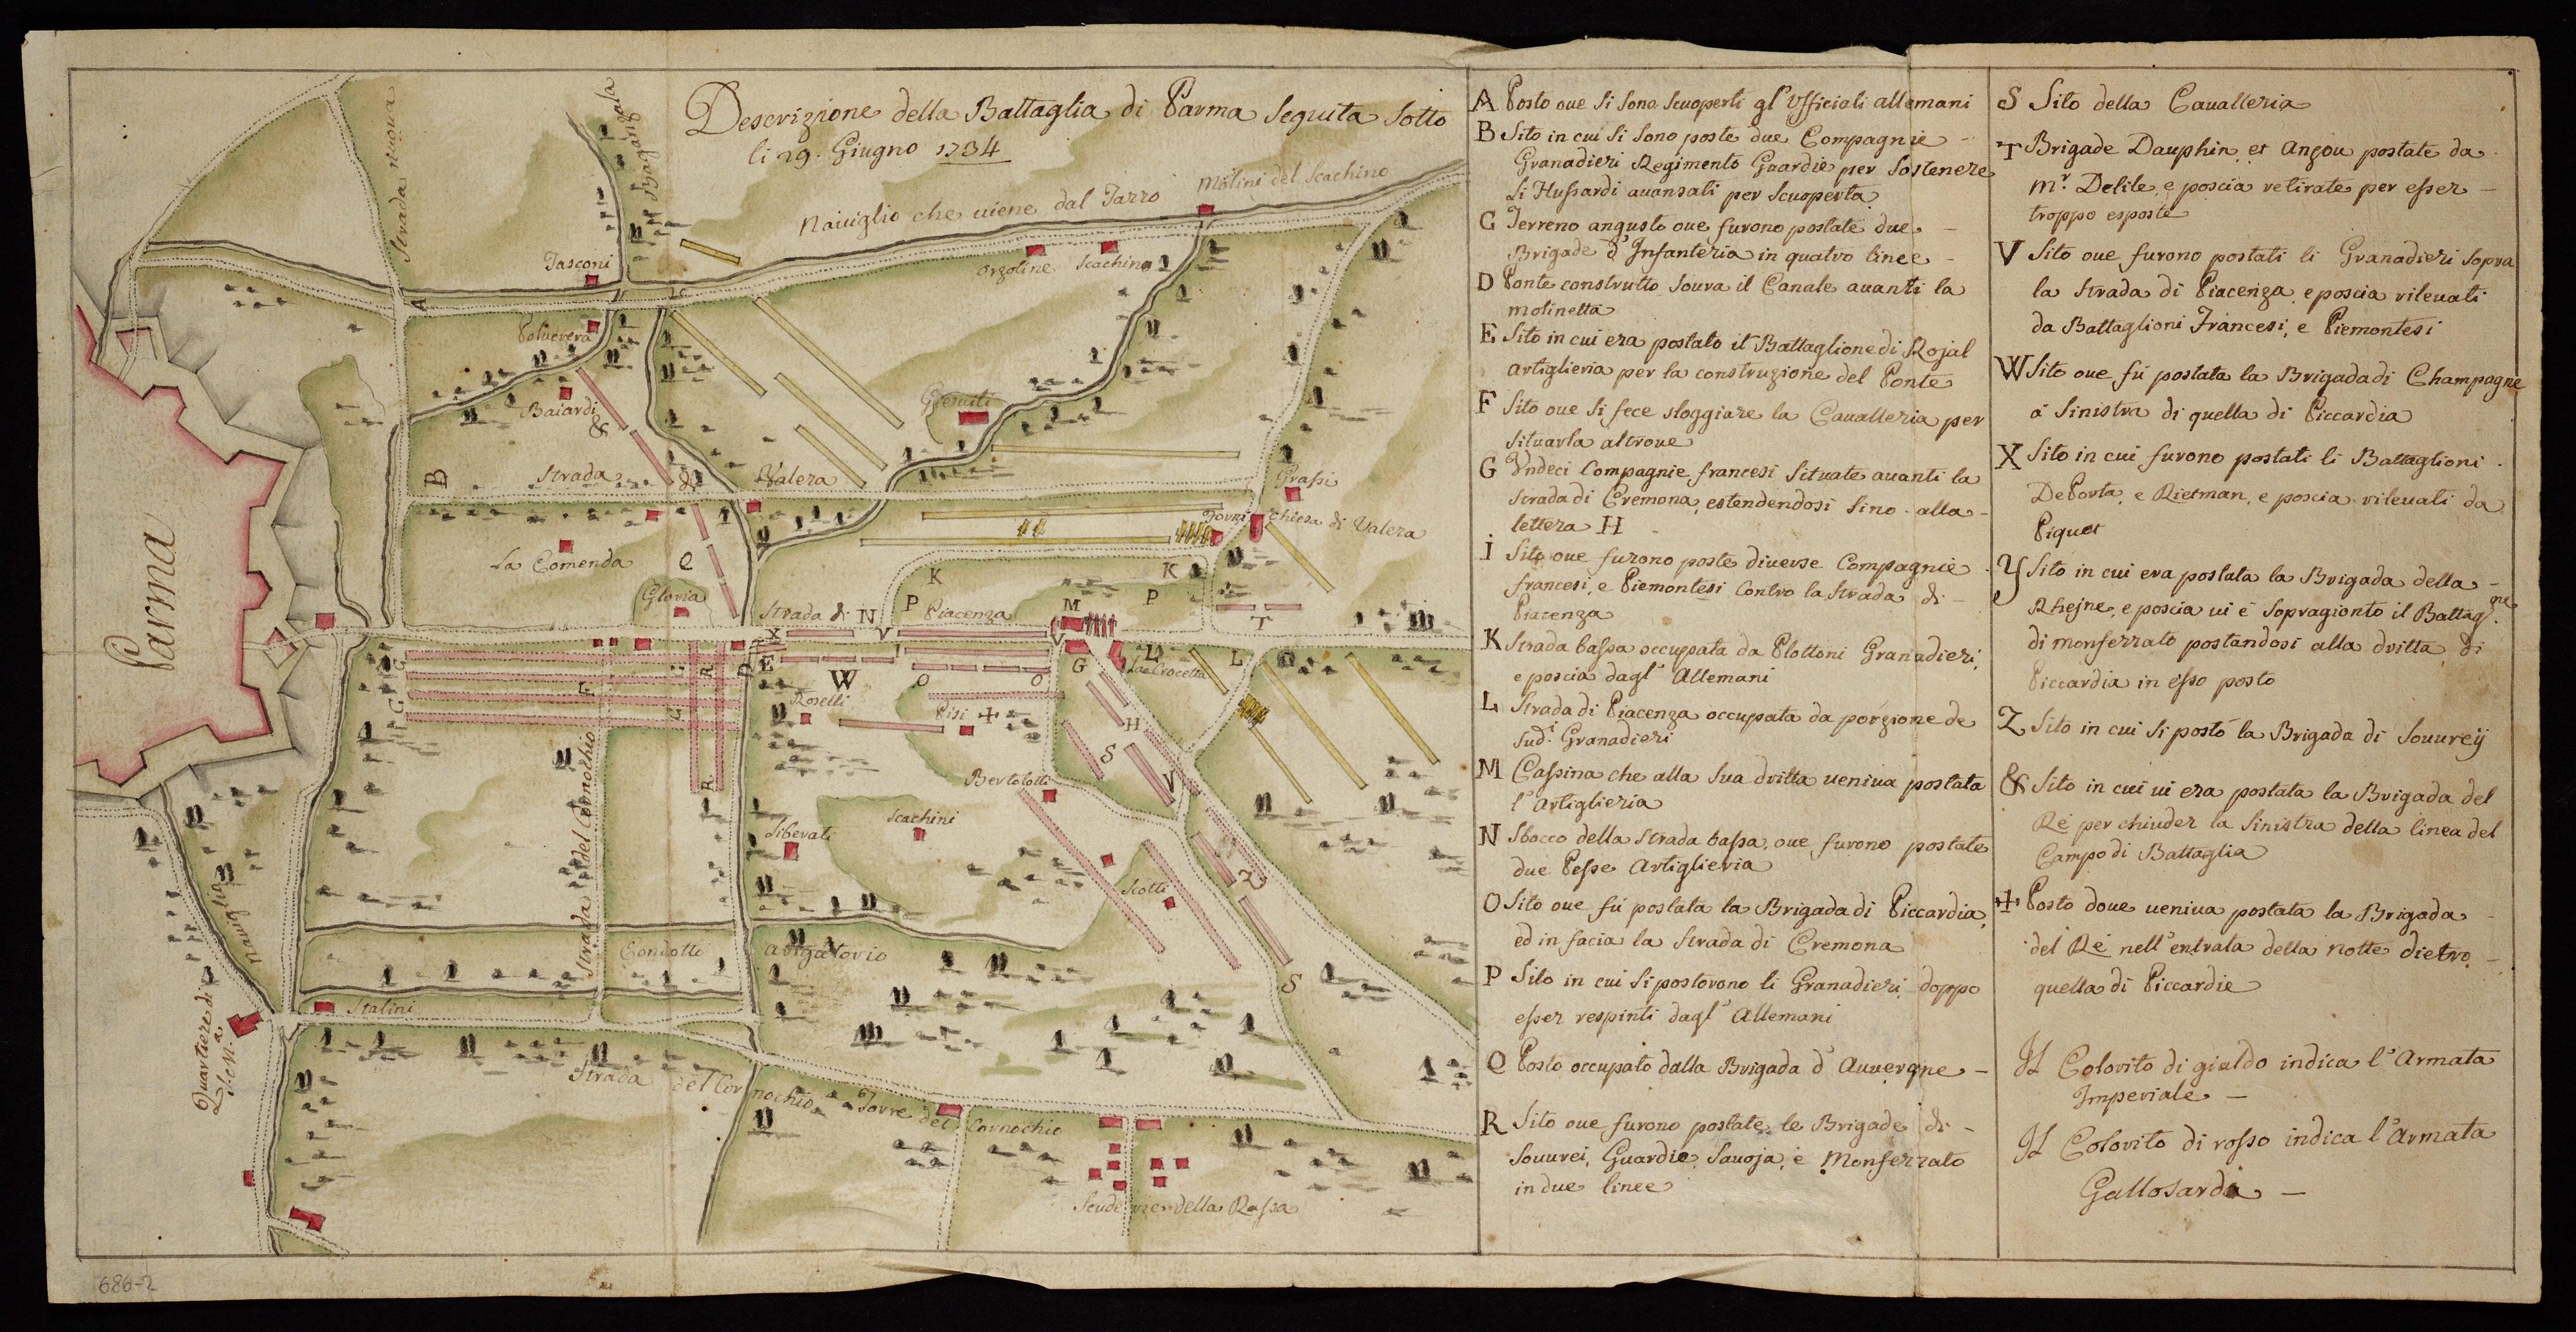 Descrizione della Battaglia di Parma Seguita Sotto
li 29. Giugno 1734
Strada nuova
Baganzala
Naiviglio che uiene dal Tarro
Molini del Scachino
Tasconi
Orzoline
Scachino
A
Poluerera
Baiardi
&
Giesuiti
B
Strada di Valera
Grassi
Chiesa di Valera
La Comenda
Q
Gloria
K
K
P
P
Strada di Piacenza
N
M
T
X
V
V
I
Parma
E
D
W
O
O
G
L
L
La Crocetta
C
C
F
G
G
R
R
Roselli
Pisi
H
S
V
Bertolotti
Scachini
Liberati
Scotti
Z
S
Strada del Cornochio
Naviglia
Condotto
Quartiere di
Stalini
Strada del Cornochio
Torre del Cornochio
Scuderie della Rassa
686-2
A Posto oue Si Sono Scuoperti gl' Vfficiali allemani
B Sito in cui Si Sono poste due Compagnie -
Granadieri Regimento Guardie per Sostenere
li Hussardi auansati per Scuoperta
C Terreno angusto oue furono postate due -
Brigade d'Infanteria in quatro linee -
D Ponte construtto Souva il Canale auanti la
molinetta
E Sito in cui era postato il Battaglione di Rojal
Artiglieria per la construzione del Ponte
F Sito oue Si fece sloggiare la Caualleria per
Situarla altroue
G Vndeci Compagnie francesi Situate auanti la
Strada di Cremona, estendendosi Sino alla -
lettera H -
I Sito oue furono poste diuerse Compagnie
francesi, e Piemontesi Contro la Strada di -
Piacenza
K Strada bassa occupata da Plottoni Granadieri,
e poscia dagl' Allemani
L Strada di Piacenza occupata da porzione de
Sud.i Granadieri
M Cassina che alla Sua dritta ueniua postata
l'Artiglieria
N Sbocco della Strada bassa, oue furono postate
due Pesse Artiglieria
O Sito oue fú postata la Brigada di Piccardia,
ed in facia la Strada di Cremona
P Sito in cui Si postorono li Granadieri doppo
esser respinti dagl' Allemani
Q Posto occupato dalla Brigada d'Auuergne -
R Sito oue furono postate le Brigade di -
Souurei, Guardie, Sauoja, e Monferrato
in due linee
S Sito della Caualleria
T Brigade Dauphin, et Anjou postate da
M.r Delile, e poscia retirate per esser -
troppo esposte
V Sito oue furono postati li Granadieri Sopra
la Strada di Piacenza, e poscia rileuati
da Battaglioni Francesi, e Piemontesi
W Sito oue fú postata la Brigada di Champagne
á Sinistra di quella di Piccardia
X Sito in cui furono postati li Battaglioni
De Porta, e Rietman, e poscia rileuati da
Piquet
Y Sito in cui era postata la Brigada della -
Rhejne, e poscia ui é Sopragionto il Battag.ne
di Monferrato postandosi alla dritta di
Piccardia in esso posto
Z Sito in cui Si postó la Brigada di Souureÿ
& Sito in cui ui era postata la Brigada del
Ré per chiuder la Sinistra della linea del
Campo di Battaglia
+ Posto doue ueniua postata la Brigada
del Ré nell'entrata della notte dietro
quella di Piccardie
Il Colorito di gialdo indica l'Armata
Imperiale -
Il Colorito di rosso indica l'Armata
Gallosarda -